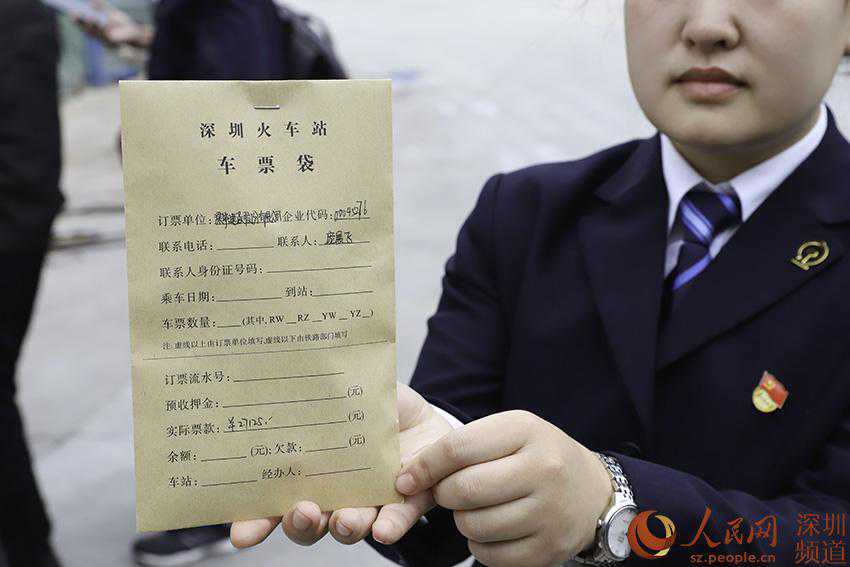 深圳火车站
车票袋
订票单位: 企业代码:
联系电话: 联系人: 庞晨飞
联系人身份证号码:
乘车日期 到站:
车票数量: (其中, RW RZ YW YZ )
注: 虚线以上由订票单位填写, 虚线以下由铁路部门填写
订票流水号:
预收押金: (元)
实际票款: ¥27125.- (元)
余额: (元); 欠款: (元)
车站: 经办人:
人民网 深圳
sz.people.cn 频道